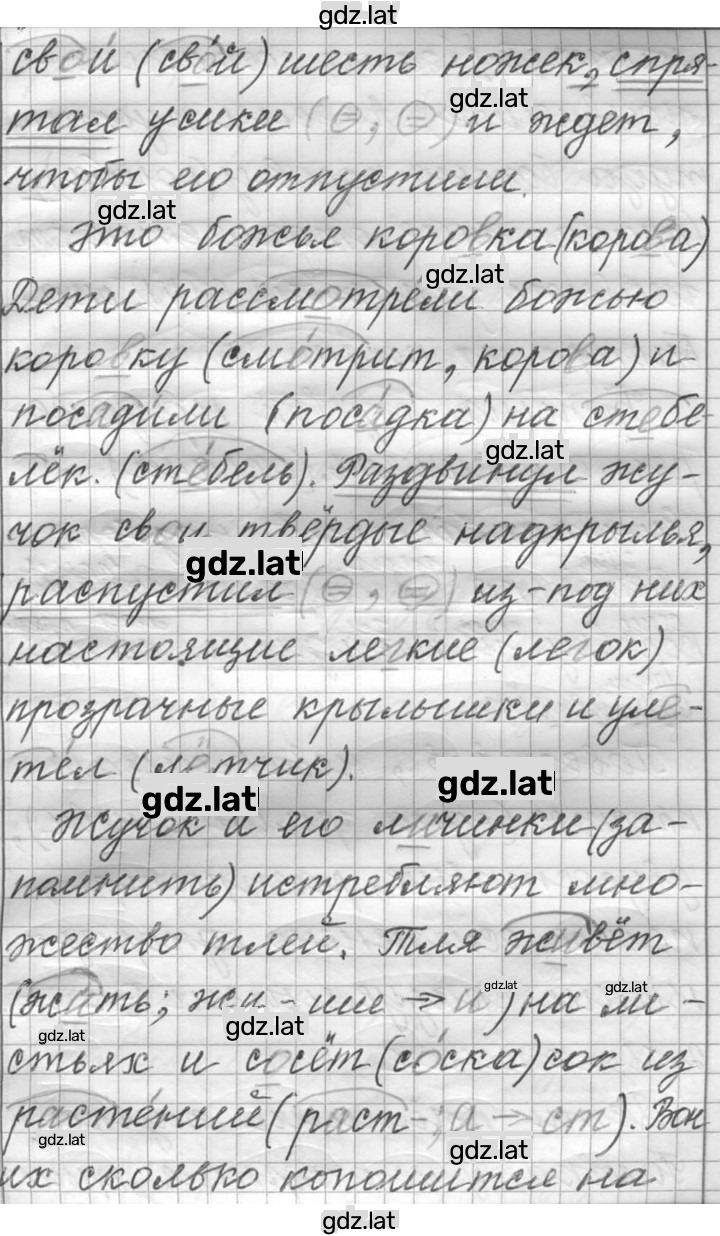 gdz.lat
свой (свой) шесть ножек, спря-
gdz.lat
тал усики (=, =) и ждет,
чтобы его отпустили.
gdz.lat
Это божья коровка (корова)
gdz.lat
Дети рассмотрели божью
коровку (смотрит, корова) и
посадили (посадка) на стебе-
gdz.lat
лёк. (стебель). Раздвинул жу-
чок свои твёрдые надкрылья,
gdz.lat
распустил (=, =) из-под них
настоящие легкие (легок)
прозрачные крылышки и уле-
тел (летчик).
gdz.lat
gdz.lat
Жучок и его личинки (за-
помнить) истребляют мно-
жество тлей. Тля живёт
(жить; жи - шие → и) на ли-
gdz.lat
gdz.lat
gdz.lat
gdz.lat
стьях и сосёт (соска) сок из
растений (раст-; а → ст). Вон
gdz.lat
gdz.lat
их сколько копошится на
gdz.lat